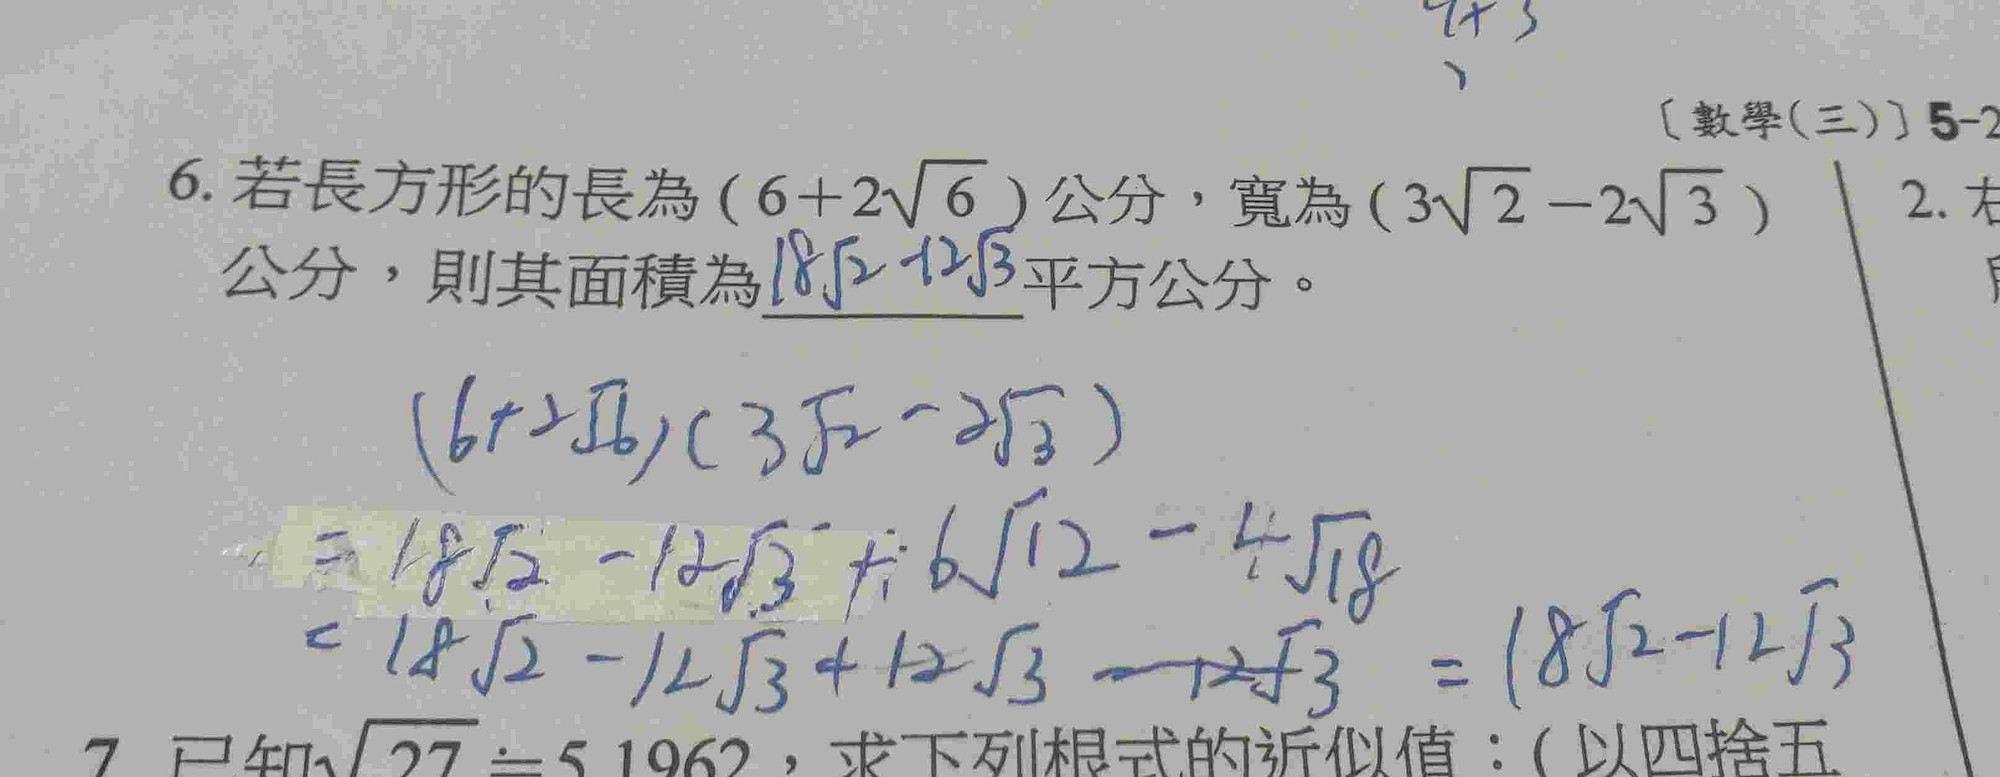 4+3
〔數學(三)〕5-2
6. 若長方形的長為(6+2√6)公分，寬為(3√2-2√3)
公分，則其面積為18√2-12√3平方公分。
(6+2√6)(3√2-2√3)
=18√2-12√3+6√12-4√18
=18√2-12√3+12√3-12√3=18√2-12√3
7. 已知√27≒5.1962，求下列根式的近似值：(以四捨五
2. 右